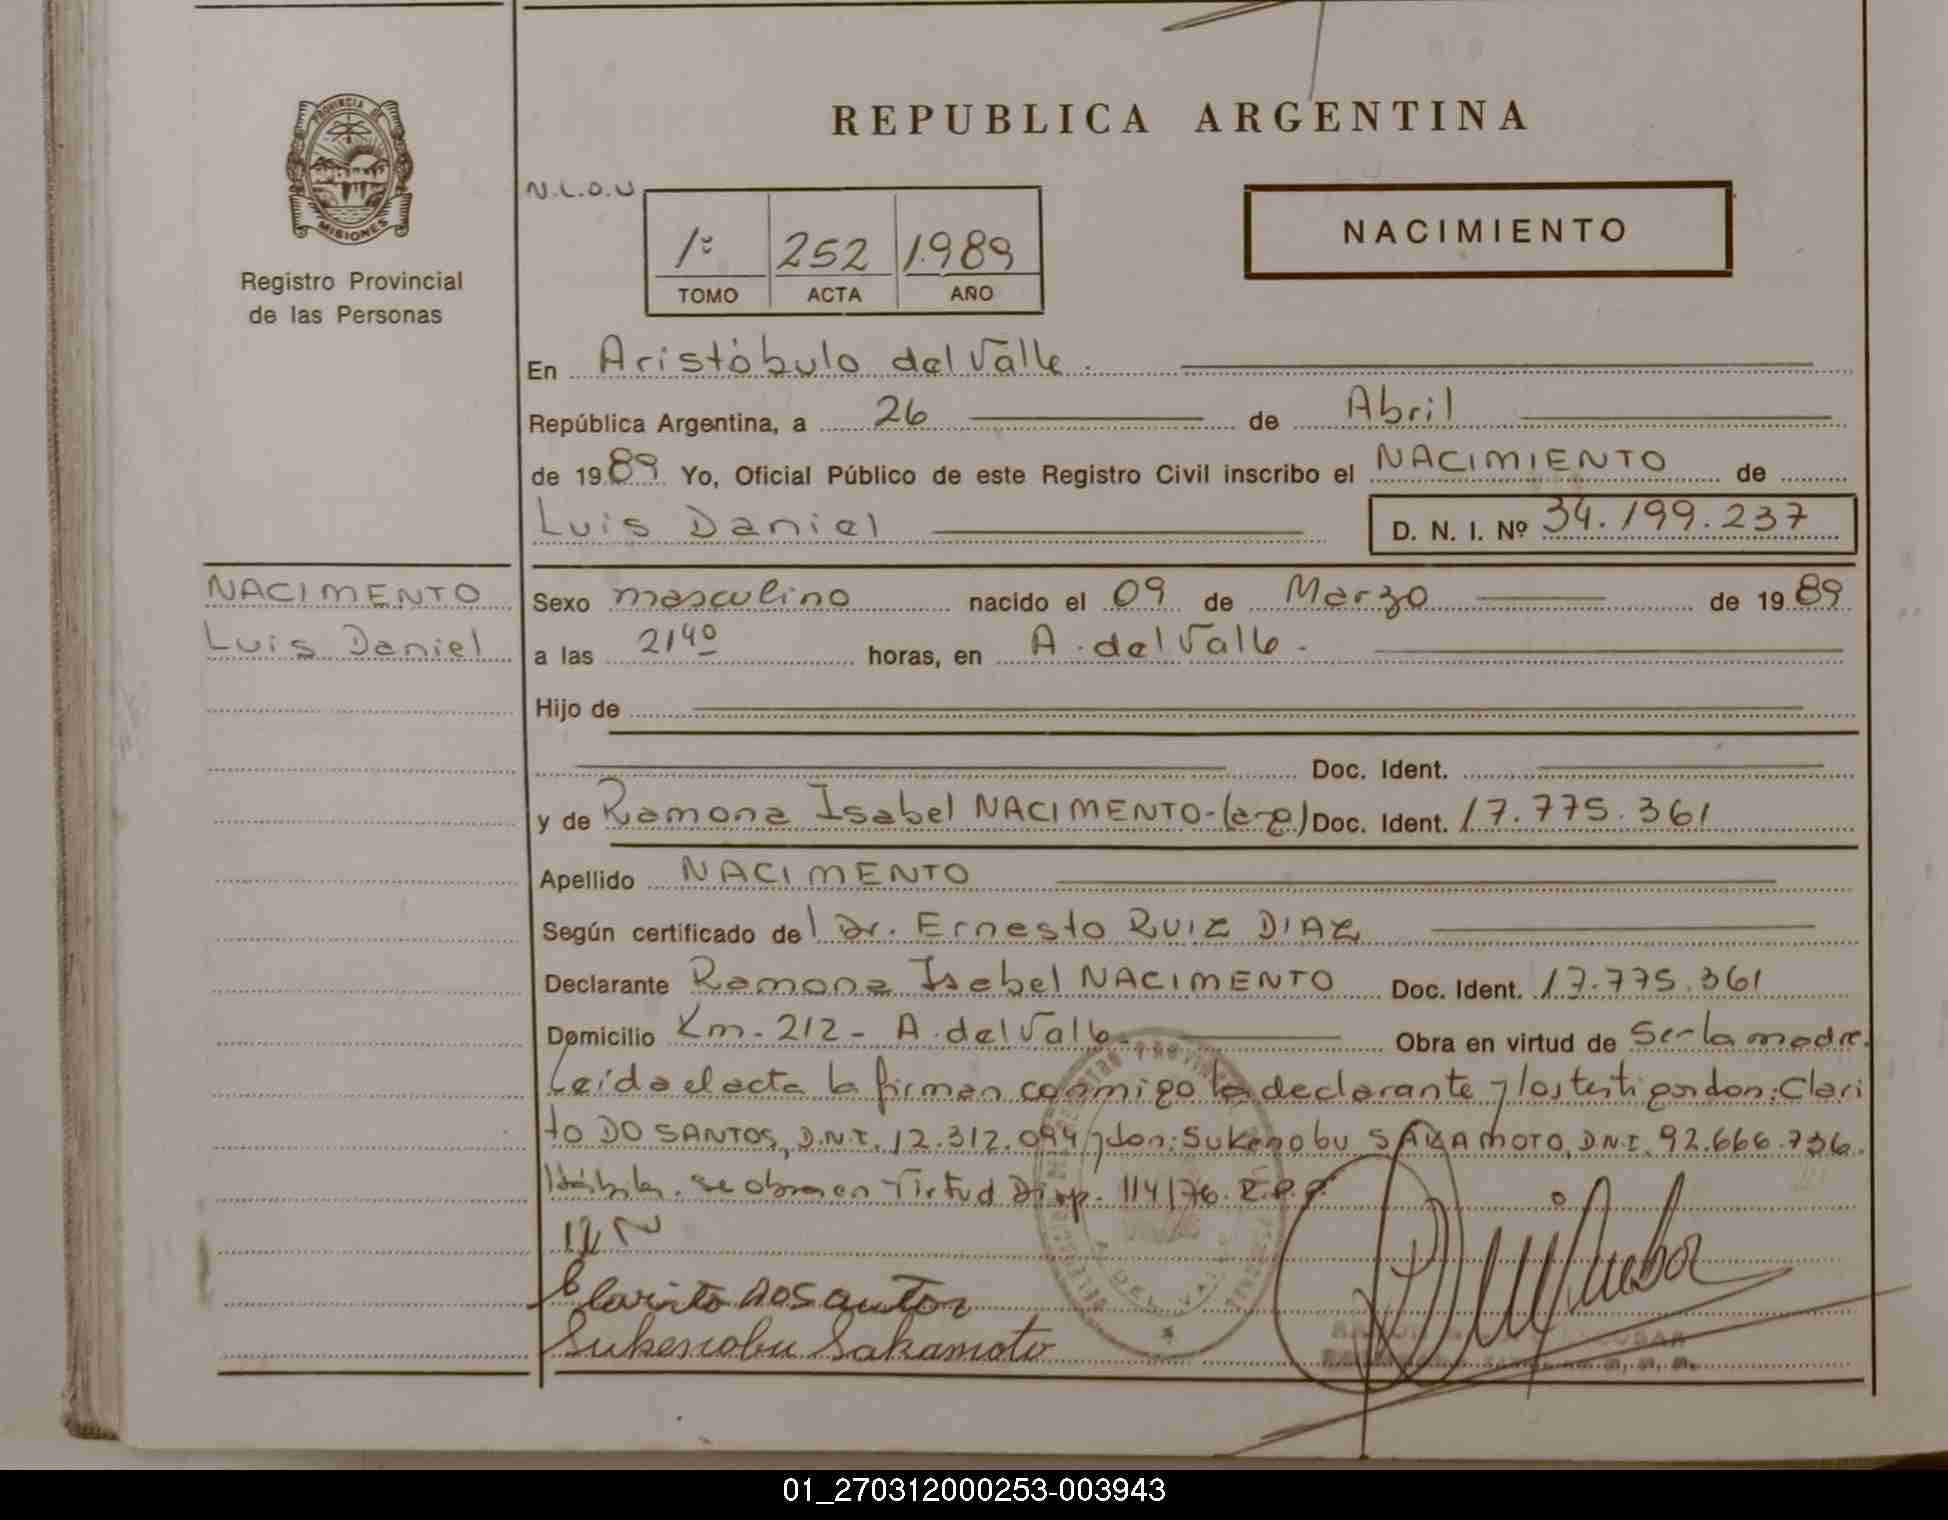 REPUBLICA ARGENTINA
PROVINCIA DE
MISIONES
Registro Provincial
de las Personas
N.L.O.U
1º 252 1989
TOMO ACTA AÑO
NACIMIENTO
En Aristóbulo del Valle.
República Argentina, a 26 de Abril
de 1989 Yo, Oficial Público de este Registro Civil inscribo el NACIMIENTO de
Luis Daniel D. N. I. Nº 34.199.237
NACIMENTO
Luis Daniel
Sexo masculino nacido el 09 de Marzo de 1989
a las 21⁴⁰ horas, en A. del Valle.
Hijo de
Doc. Ident.
y de Ramona Isabel NACIMENTO-(arg) Doc. Ident. 17.775.361
Apellido NACIMENTO
Según certificado del Dr. Ernesto RUIZ DIAZ
Declarante Ramona Isabel NACIMENTO Doc. Ident. 17.775.361
Domicilio Km-212- A. del Valle Obra en virtud de Ser la madre.
Leída el acta la firman conmigo la declarante y los testigos don: Clari
to DO SANTOS, D.N.I. 12.312.094 y don: Sukenobu SAKAMOTO, D.N.I. 92.666.736.
Hábiles. se obra en Virtud Disp. 114/76. R.P.P.
Clarito DoSantos
Sukenobu Sakamoto
01_270312000253-003943